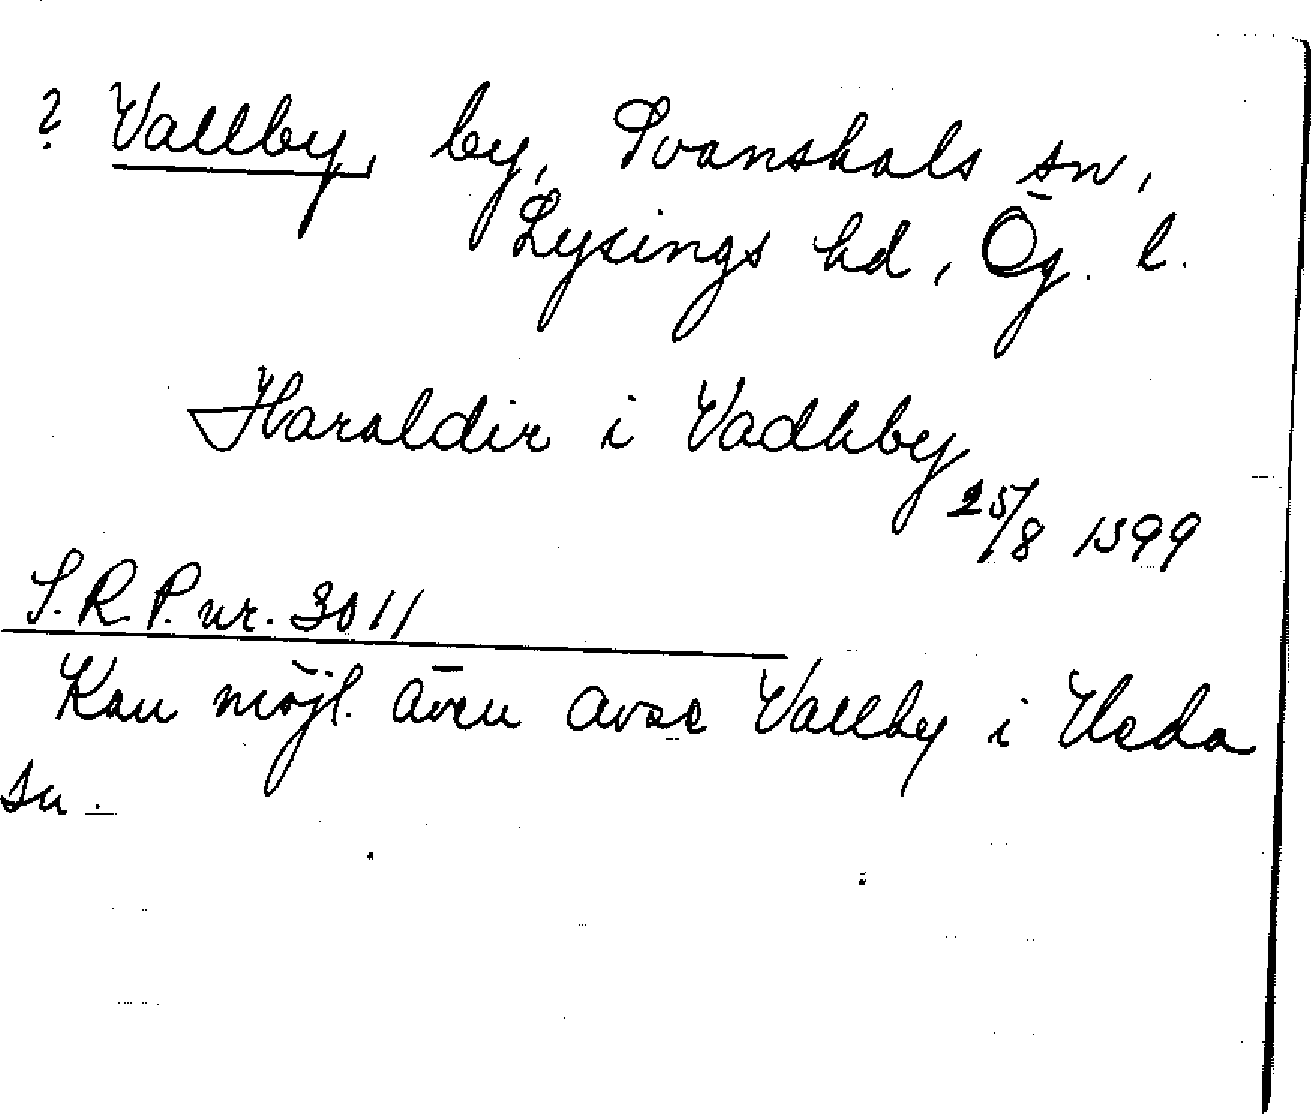 ? Vallby, by, Svanshals sn,
Lysings hd, Ög. l.
Haraldir i Vadhby
25/8 1399
S.R.P. nr. 3011
Kan möjl. även avse Vallby i Heda
sn.